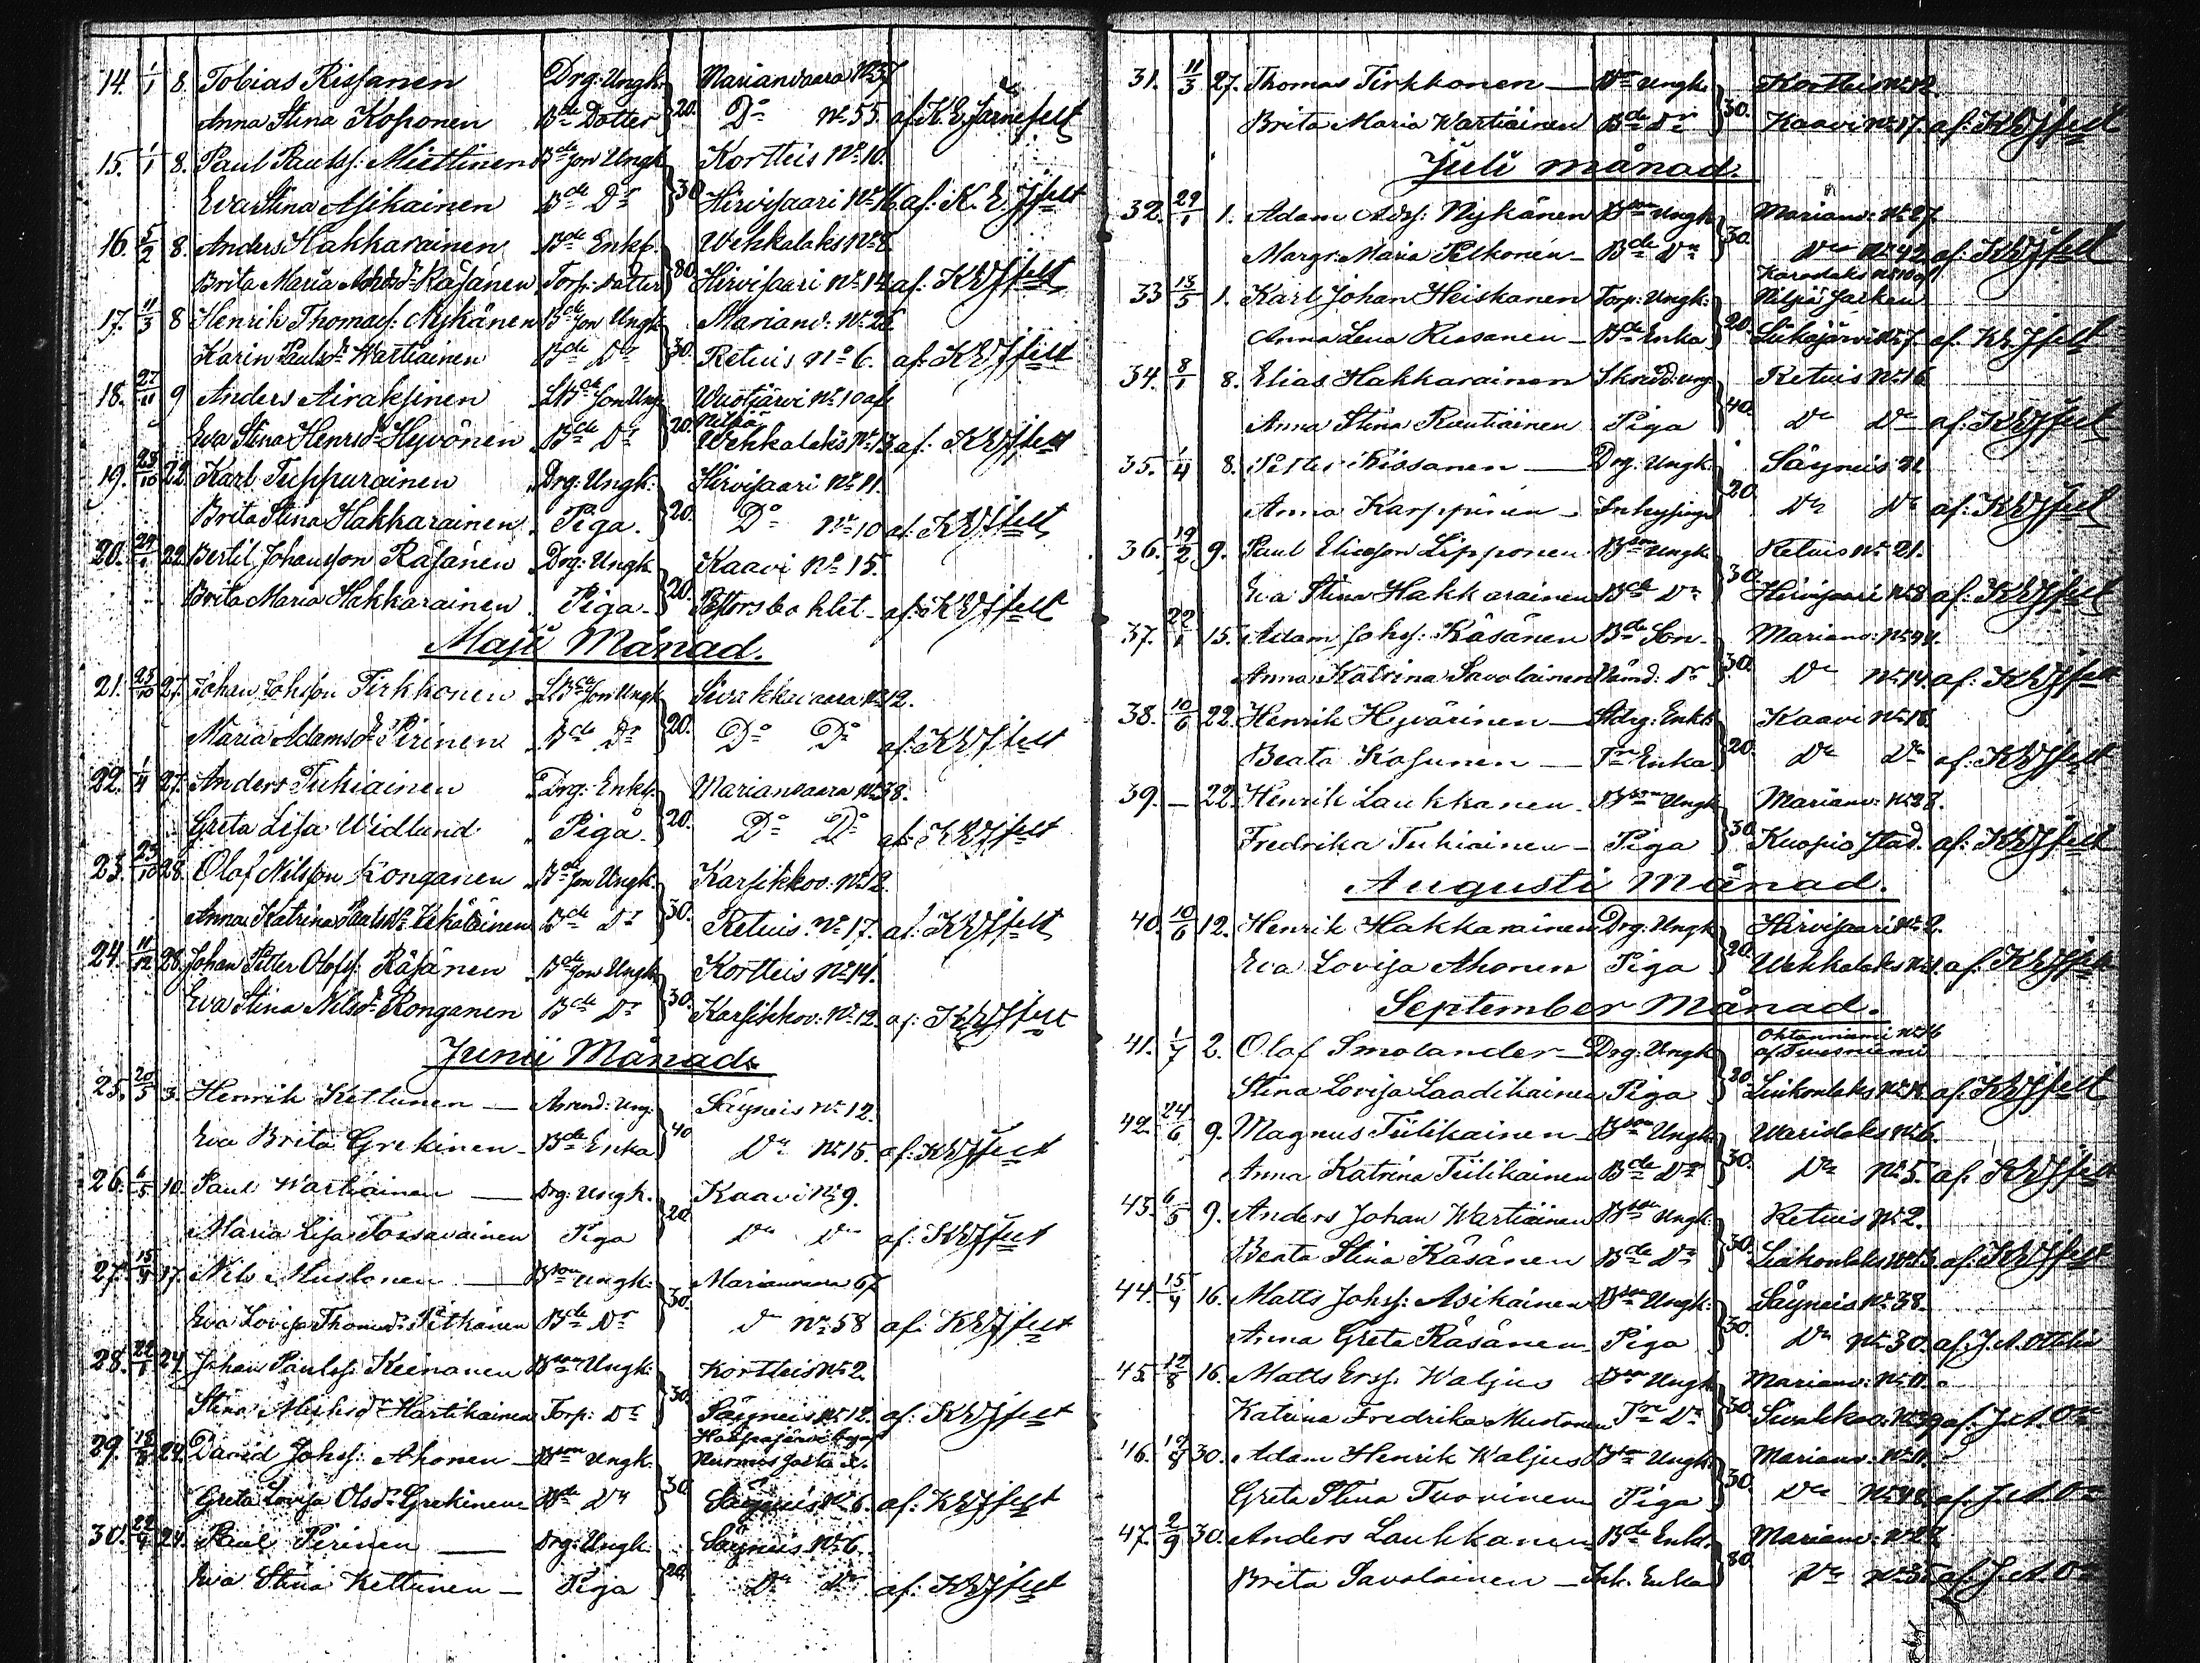 14. 1/1 8. Tobias Rissanen Drg: Ungk. Marianvaara No 37
Anna Stina Koponen Bde Dotter 20. Do No 55. af. K. E. Järnefelt
15. 1/1 8. Paul Paulss: Miettinen Bde Son Ungk Kortteis No 10.
Eva Stina Asikainen Bde Dr 30 Hirvisaari No 16 af. K. E. Jfelt
16. 5/2 8. Anders Hakkarainen Bde Enkl. Wehkalaks No 8
Brita Maria Räsänen Torp: dotter 80. Hirvisaari No 14 af. KEJfelt
17. 11/3 8 Henrik Thomass: Nykänen Bde Son Ungk Marianv: No 28
Karin Paulsdr Wartiainen Bde Dr 30. Retuis No 6. af. KEJfelt
18. 27/11 9 Anders Airaksinen LBde Son Ung Wuotjärvi No 10 af
Nilsiä
Eva Stina Henrsdr Hyvönen Bde Dr 20. Wehkalaks No 13 af. KEJfelt
19. 23/10 22. Karl Tuppurainen Drg: Ungk: Hirvisaari No 11.
Brita Stina Hakkarainen Piga. 20. Do No 10 af. KEJfelt
20. 29/1 22 Bertil Johansson Räsänen Drg: Ungk Kaavi No 15.
Brita Maria Hakkarainen Piga. 20. af. KEJfelt
Maji Månad.
21. 23/10 27. Johan Johsson Tirkkonen LBde Son Ungk Sivakkavaara No 12.
Maria Adamsdr Pirinen Bde Dr 20. Do Do af. KEJfelt
22. 1/4 27. Anders Tukiainen Drg: Enkl. Marianvaara No 38.
Greta Lisa Widlund Piga 20. Do Do af. KEJfelt
23. 23/10 28. Olof Nilsson Ronganen Bde Son Ungk. Karsikkov. No 12.
Anna Katrina Bde Dr 30. Retuis. No 17. af. KEJfelt
24. 11/12 28. Johan Petter Olofss. Räsänen Bde Son Ungk Kortteis No 14.
Eva Stina Nilsdr Ronganen Bde Dr 30. Karsikkov: No 12. af. KEJfelt
Junii Månad.
25. 20/5 3. Henrik Kettunen Arrend: Ung. Säyneis No 12.
Eva Brita Grekinen Bde Enka 40 Do No 15. af. KEJfelt
26. 6/5 10. Paul Wartiainen Drg: Ungk. Kaavi No 9.
Maria Lisa Tossavainen Piga 20. Do Do af. KEJfelt
27. 15/4 17. Nils Mustonen Bson Ungk: Marianvaara 67
Eva Lovisa Thomdr Pitkänen Bde Dr 30. D No 58 af. KEJfelt
28. 22/1 24. Johan Paulss. Keinanen Bson Ungk: Kortteis No 2.
Stina Michsdr Hartikainen Torp: Dr 30. Säyneis No 12. af. KEJfelt
29. 24. David Johss: Ahonen Bson Ungk. Nurmis
Greta Lovisa Olsdr Grekinen Bde Dr 30. Säyneis No 6. af. KEJfelt
30. 24. Paul Pirinen Drg: Ungk. Säyneis No 6.
Eva Stina Kettunen Piga 20. Do Do af. KEJfelt
31. 11/3 27. Thomas Tirkkonen Bson Ungk. Kortteis No 12.
Brita Maria Wartiainen Bde Dr 30. Kaavi No 17. af. KEJfelt
Juli månad.
32. 29/1 1. Adam Adss: Nykänen Bson Ungk Marianv: No 27
Margr. Maria Pelkonen Bde Dr 30. Do No 42 af. KEJfelt
33 13/5 1. Karl Johan Heiskanen Torp: Ungk: Nilsiä Socken
Anna Lena Rissanen Bde Enka 20. Luikajärvi No 7. af. KEJfelt
34. 8/1 8. Elias Hakkarainen Skrädd: ung Retuis No 16
Anna Stina Rautiainen Piga 40. Do Do af. KEJfelt
35. 1/4 8. Petter Kissanen Drg: Ungk: Säyneis 21
Anna Karppinen 20. Do Do af. KEJfelt
36. 19/2 9. Paul Eliasson Lipponen Bson Ungk Retuis No 21.
Eva Stina Hakkarainen Bde Dr 30. Hirvisaari No 8 af. KEJfelt
37. 22/1 15. Adam Johss: Räsänen Bde Son Marianv: No 44.
Anna Katrina Savolainen Nämd: Dr 30. Do No 14. af. KEJfelt
38. 10/6 22. Henrik Hyvärinen Stdrg: Enkl Kaavi No 18
Beata Kosunen Tr Enka 20. Do Do af. KEJfelt
39. — 22. Henrik Laukkanen Bson Ungk Marianv: No 28.
Fredrika Tukiainen Piga 30. Kuopio Stad. af. KEJfelt
Augusti Månad.
40. 10/6 12. Henrik Hakkarainen Drg: Ungk Hirvisaari No 2.
Eva Lovisa Ahonen Piga 20. Wehkalaks af. KEJfelt
September Månad.
41. 1/7 2. Olof Smolander Drg: Ungk Ohtaanniemi No 16
af Tuusniemi
Stina Lovisa Laadikainen Piga 20. af. KEJfelt
42. 24/6 9. Magnus Tiilikainen Bson Ungk Warislaks No 6.
Anna Katrina Tiilikainen Bde Dr 30. Do No 5. af. KEJfelt
43. 6/5 9. Anders Johan Wartiainen Bson Ungk Retuis No 2.
Beata Stina Räsänen Bde Dr 30. af. KEJfelt
44. 15/4 16. Matts Johss: Asikainen Bson Ungk: Säyneis No 38.
Anna Greta Räsänen Piga 30. Do No 30. af. J. A.
45. 12/8 16. Matts Erss: Waljus Bson Ungk Marianv: No 11.
Katrina Fredrika Mustonen Tr Dr 30. af. J. A.
46. 12/8 30. Adam Henrik Waljus Bson Ungk: Marianv: No 11.
Greta Stina Tuovinen Piga 30. Do No 48. af. J. A.
47. 2/9 30. Anders Laukkanen Bde Enkl. Marianv: No 22
Brita Savolainen Enka 30. Do No 35 af. J. A.